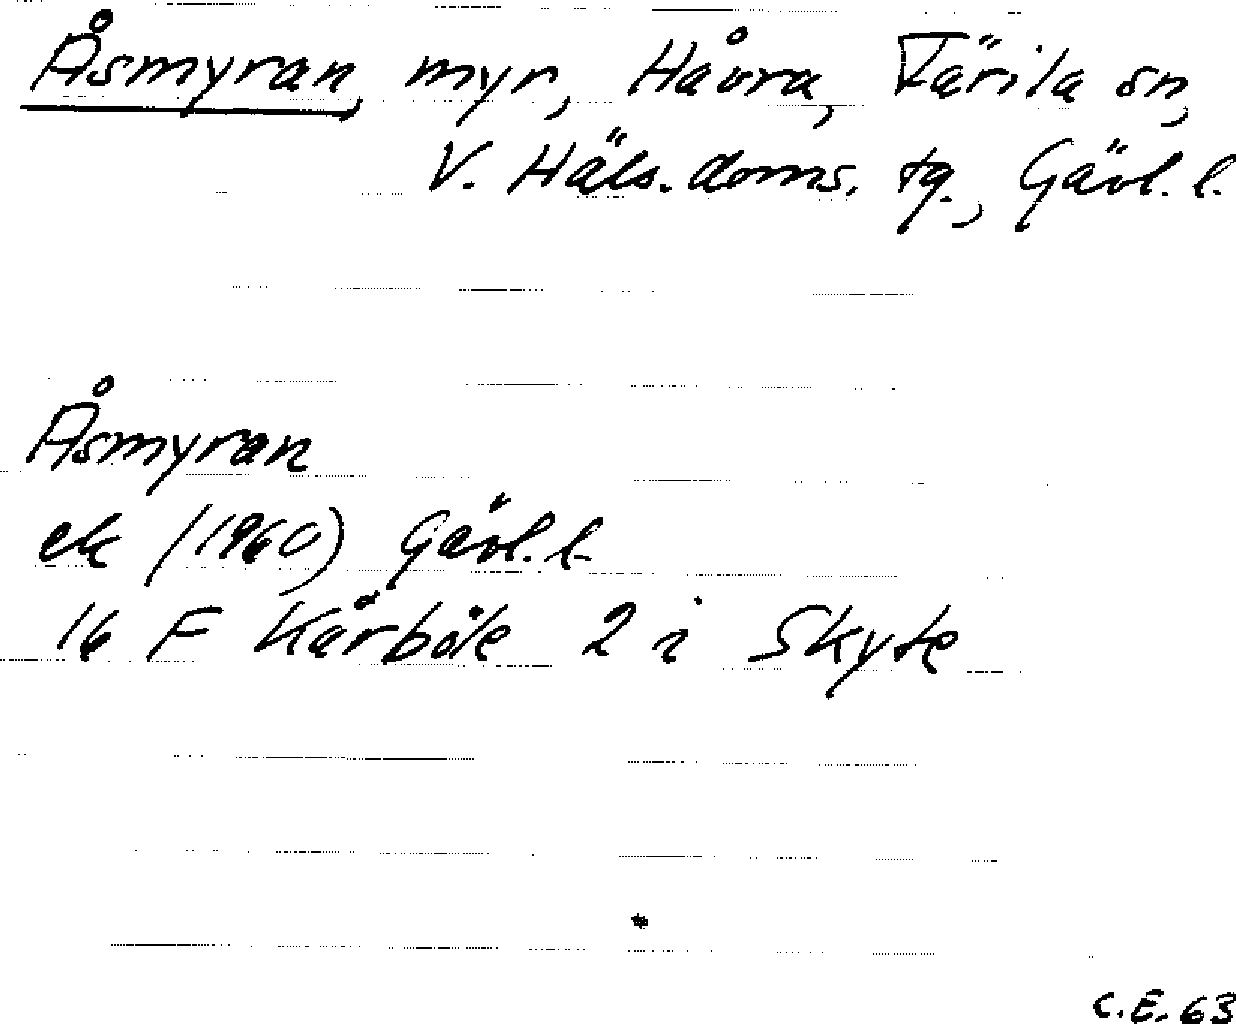 Åsmyran, myr, Håvra, Färila sn,
V. Häls. doms. tg., Gävl. l.
Åsmyran
ek (1960) Gävl. l.
16 F Kårböle 2 i Skyte
C.E. 63